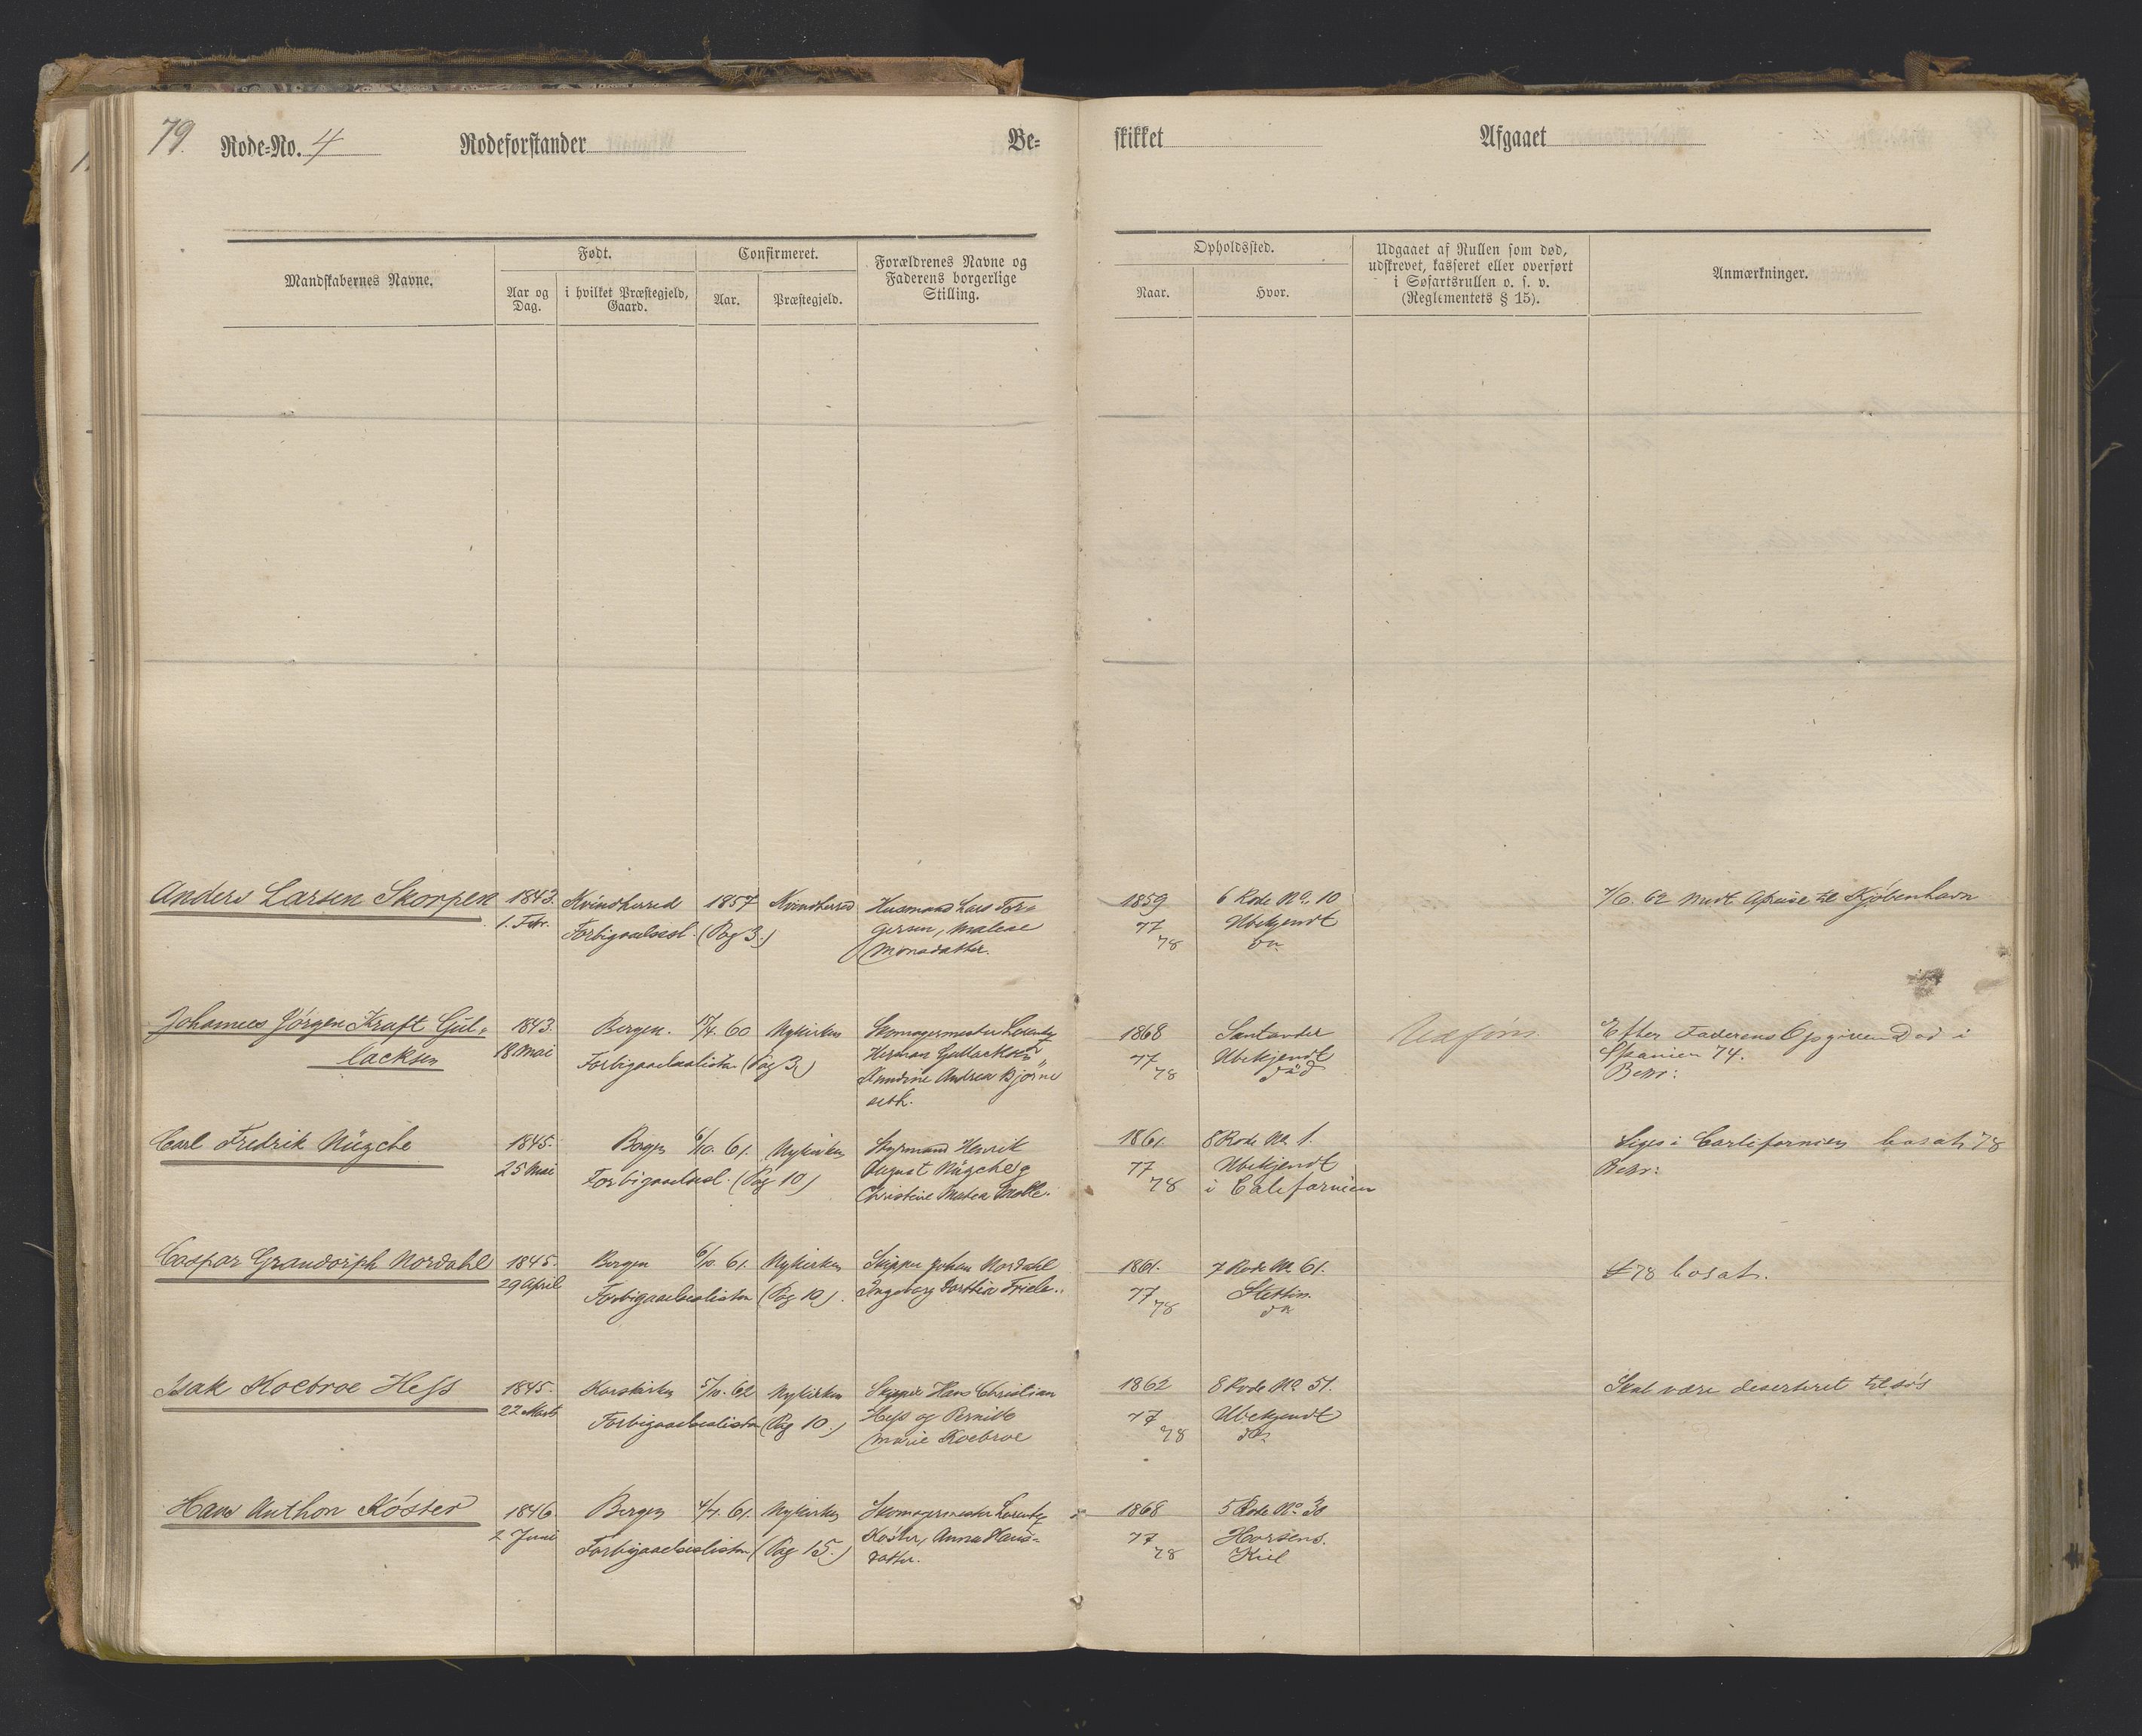 79.
Rode-No. 4 Rodeforstander Be-
skikket Afgaaet
Mandskabernes Navne.
Født.
Aar og Dag.
i hvilket Præstegjeld, Gaard.
Confirmeret.
Aar.
Præstegjeld.
Forældrenes Navne og
Faderens borgerlige
Stilling.
Opholdssted.
Naar.
Hvor.
Udgaaet af Rullen som død,
udskrevet, kasseret eller overført
i Søfartsrullen o. s. v.
(Reglementets § 15).
Anmærkninger.
Anders Larsen Skorpen 1843. Kvindherred 1857 Kvindherred Husmand Lars Tor- 1859 6 Rode No. 10 7/6. 62 Kjøbenhavn
1. Febr. Forbigaaelsesl. (Pag 3.) gersen, Malene 77 Ubekjendt
Monsdatter. 78 do
Johannes Jörgen Kraft Gul- 1843. Bergen. 17/4. 60 Nykirken Skomagermester Lorentz 1868 Santander Efter Faderens Opgivende Död i
lacksen 18 Mai Forbigaaelseslisten (Pag 3) Herman Gullacksen 77 Ubekjendt Spanien 74.
Nundine Andrea Björne 78 död Bebr:
seth.
Carl Fredrik Nügche 1845. Bergen 6/10. 61. Nykirken Styrmand Henrik 1861. 8 Rode No. 1. Siges i Carlifornien bosat 78
25 Mai Forbigaaelsesl. (Pag 10) August Nügche & 77 Ubekjendt Bebr:
Christine Matea 78 i Californien
Caspar Grandorph Nordahl 1845. Bergen 6/10. 61. Nykirken Skipper Johan Nordahl 1861. 7 Rode No. 61. 78 bosat.
29 April Forbigaaelseslisten (Pag 10). Ingeborg Dorthea Friele. 77 Stettin.
78 do
Isak Koebroe Hess 1845. Korskirken 5/10. 62 Nykirken Skipper Hans Christian 1862 8 Rode No. 51. Skal være deserteret tilsøs
22 Marts Forbigaaelseslisten (Pag 10.) Hess og Pernille 77 Ubekjendt
Marie Koebroe 78 do
Hans Anthon Köster 1846 Bergen 4/4. 61. Nykirken Skomagermester Lorentz 1868 5 Rode No. 30
2 Juni Forbigaaelseslisten (Pag 15.) Köster, Anna Hans- 77 Horsens.
datter. 78 Kiel